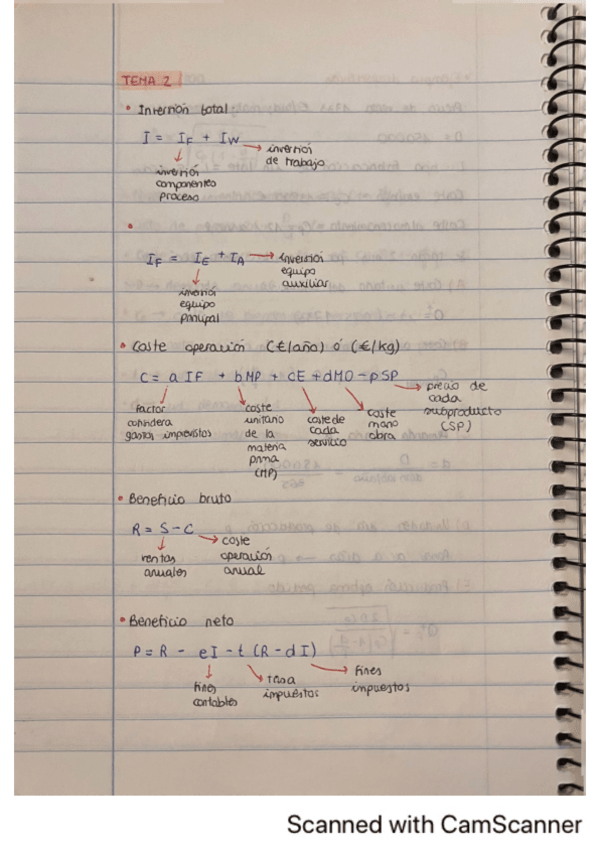 TEMA 2
• Inversión total
I = IF + IW → inversión
de trabajo
inversión
componentes
proceso
•
IF = IE + IA → inversión
equipo
auxiliar
inversión
equipo
principal
• Coste operación C(€/año) ó (€/kg)
C = a IF + bMP + cE + dMO - pSP → precio de
cada
subproducto
(SP)
factor
considera
gastos imprevistos
coste
unitario
de la
materia
prima
(MP)
coste de
cada
servicio
coste
mano
obra
• Beneficio bruto
R = S - C → coste
operación
anual
ventas
anuales
• Beneficio neto
P = R - eI - t (R - dI)
fines
contables
tasa
impuestos
fines
impuestos
Scanned with CamScanner